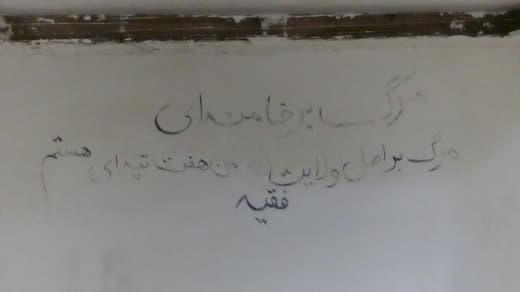 مرگ بر خامنه‌ای
مرگ بر اصل ولایت
فقیه
من هفت تپه‌ای هستم